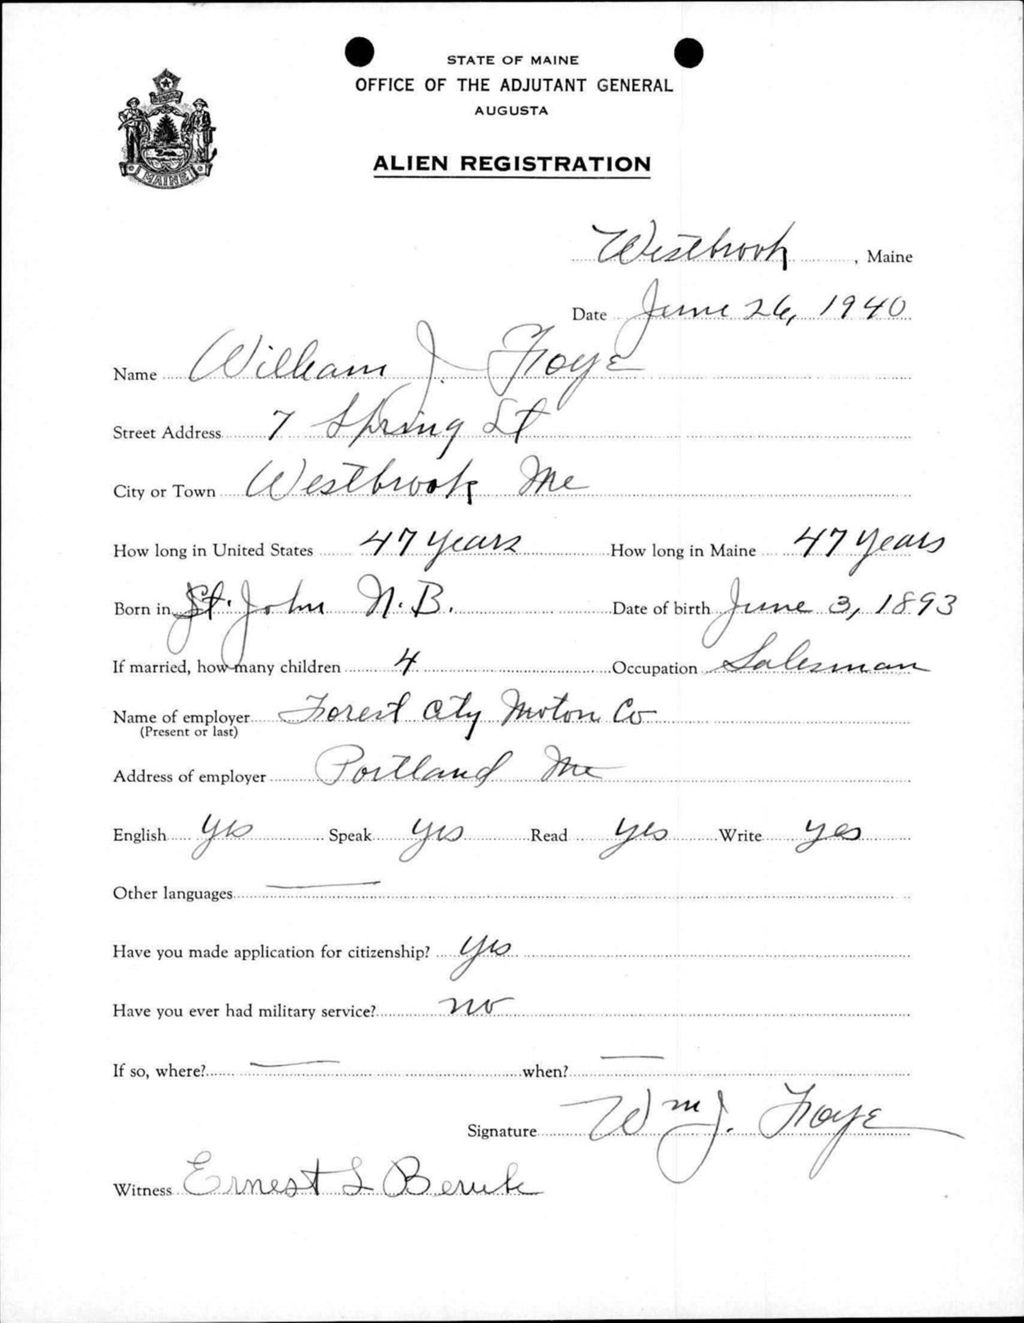 STATE OF MAINE
OFFICE OF THE ADJUTANT GENERAL
AUGUSTA
ALIEN REGISTRATION
MAINE
Westbrook, Maine
Date June 26, 1940
Name William J. Foye
Street Address 7 Spring St
City or Town Westbrook Me
How long in United States 47 years How long in Maine 47 years
Born in St. John N.B. Date of birth June 3, 1893
If married, how many children 4 Occupation Salesman
Name of employer Forest City Motor Co
(Present or last)
Address of employer Portland Me
English yes Speak yes Read yes Write yes
Other languages
Have you made application for citizenship? yes
Have you ever had military service? no
If so, where? when?
Signature Wm J. Foye
Witness Ernest L